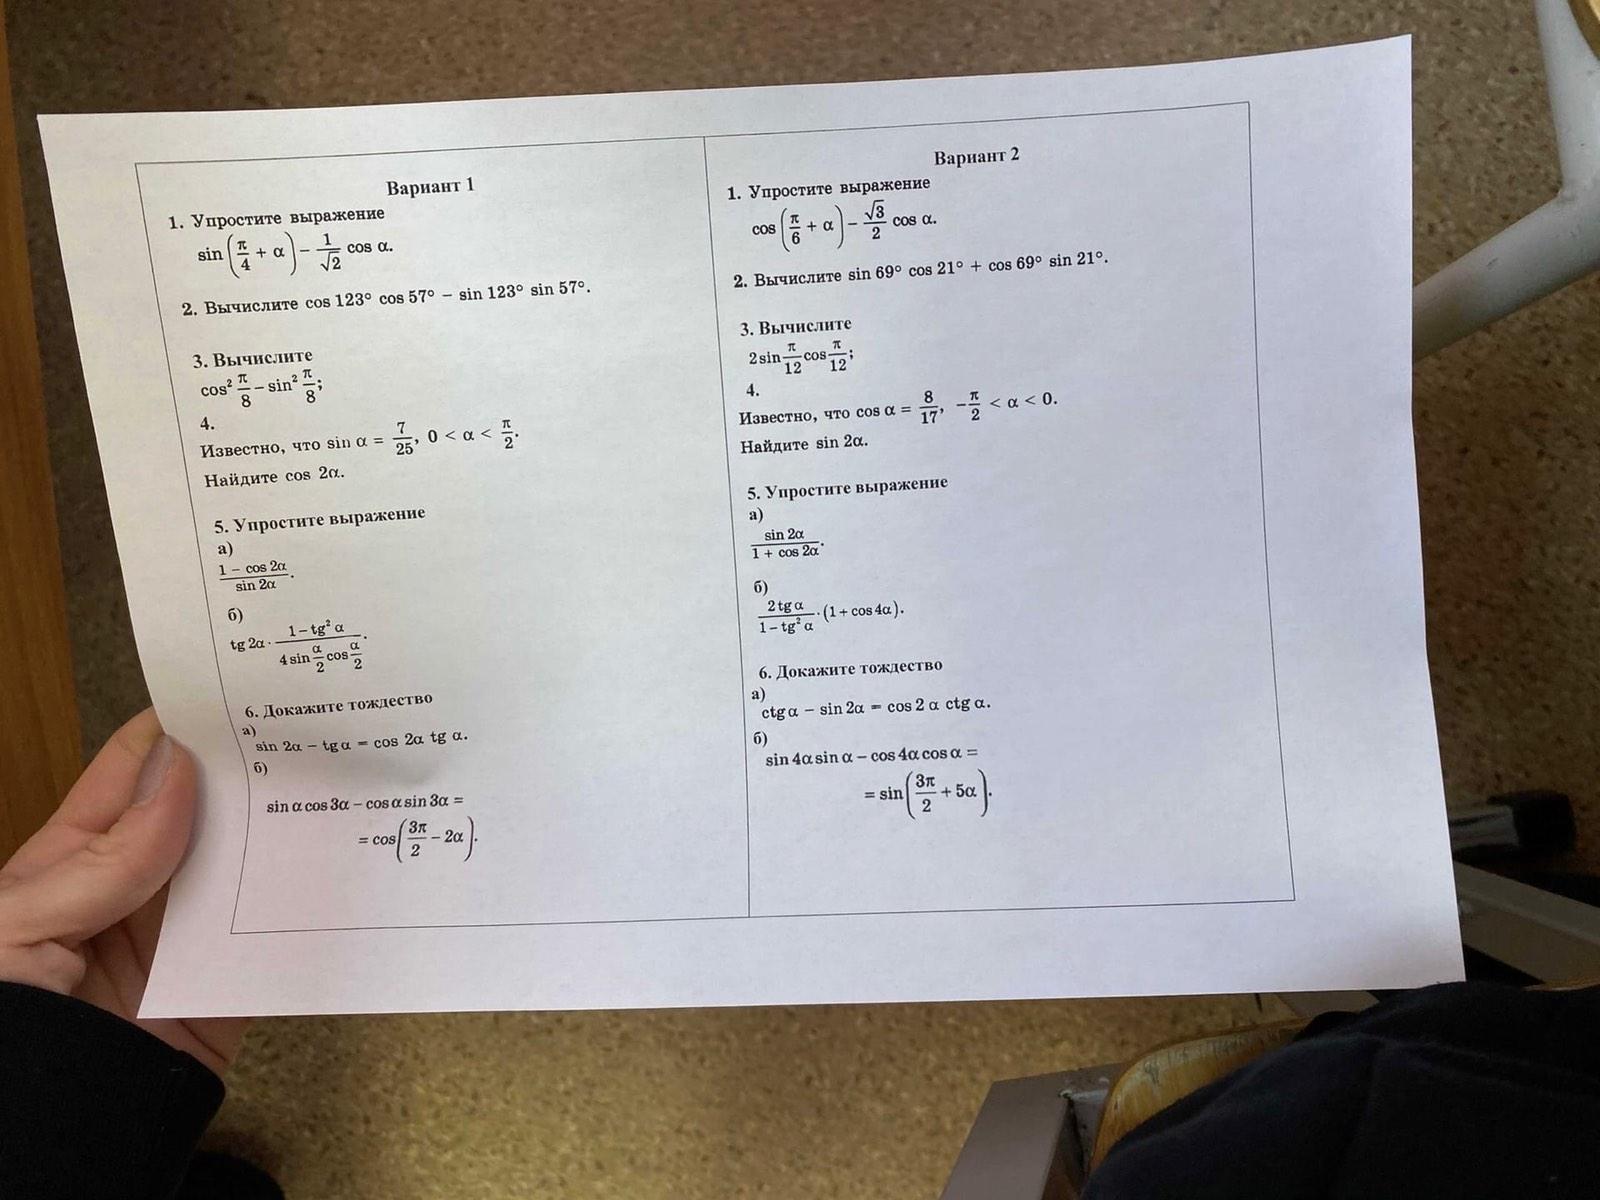 Вариант 1
1. Упростите выражение
sin(π/4 + α) − 1/√2 cos α.
2. Вычислите cos 123° cos 57° − sin 123° sin 57°.
3. Вычислите
cos² π/8 − sin² π/8;
4.
Известно, что sin α = 7/25, 0 < α < π/2.
Найдите cos 2α.
5. Упростите выражение
а)
(1 − cos 2α)/(sin 2α).
б)
tg 2α · (1 − tg² α)/(4 sin α/2 cos α/2).
6. Докажите тождество
а)
sin 2α − tg α = cos 2α tg α.
б)
sin α cos 3α − cos α sin 3α =
= cos(3π/2 − 2α).
Вариант 2
1. Упростите выражение
cos(π/6 + α) − √3/2 cos α.
2. Вычислите sin 69° cos 21° + cos 69° sin 21°.
3. Вычислите
2 sin π/12 cos π/12;
4.
Известно, что cos α = 8/17, −π/2 < α < 0.
Найдите sin 2α.
5. Упростите выражение
а)
sin 2α/(1 + cos 2α).
б)
2 tg α/(1 − tg² α) · (1 + cos 4α).
6. Докажите тождество
а)
ctg α − sin 2α = cos 2 α ctg α.
б)
sin 4α sin α − cos 4α cos α =
= sin(3π/2 + 5α).